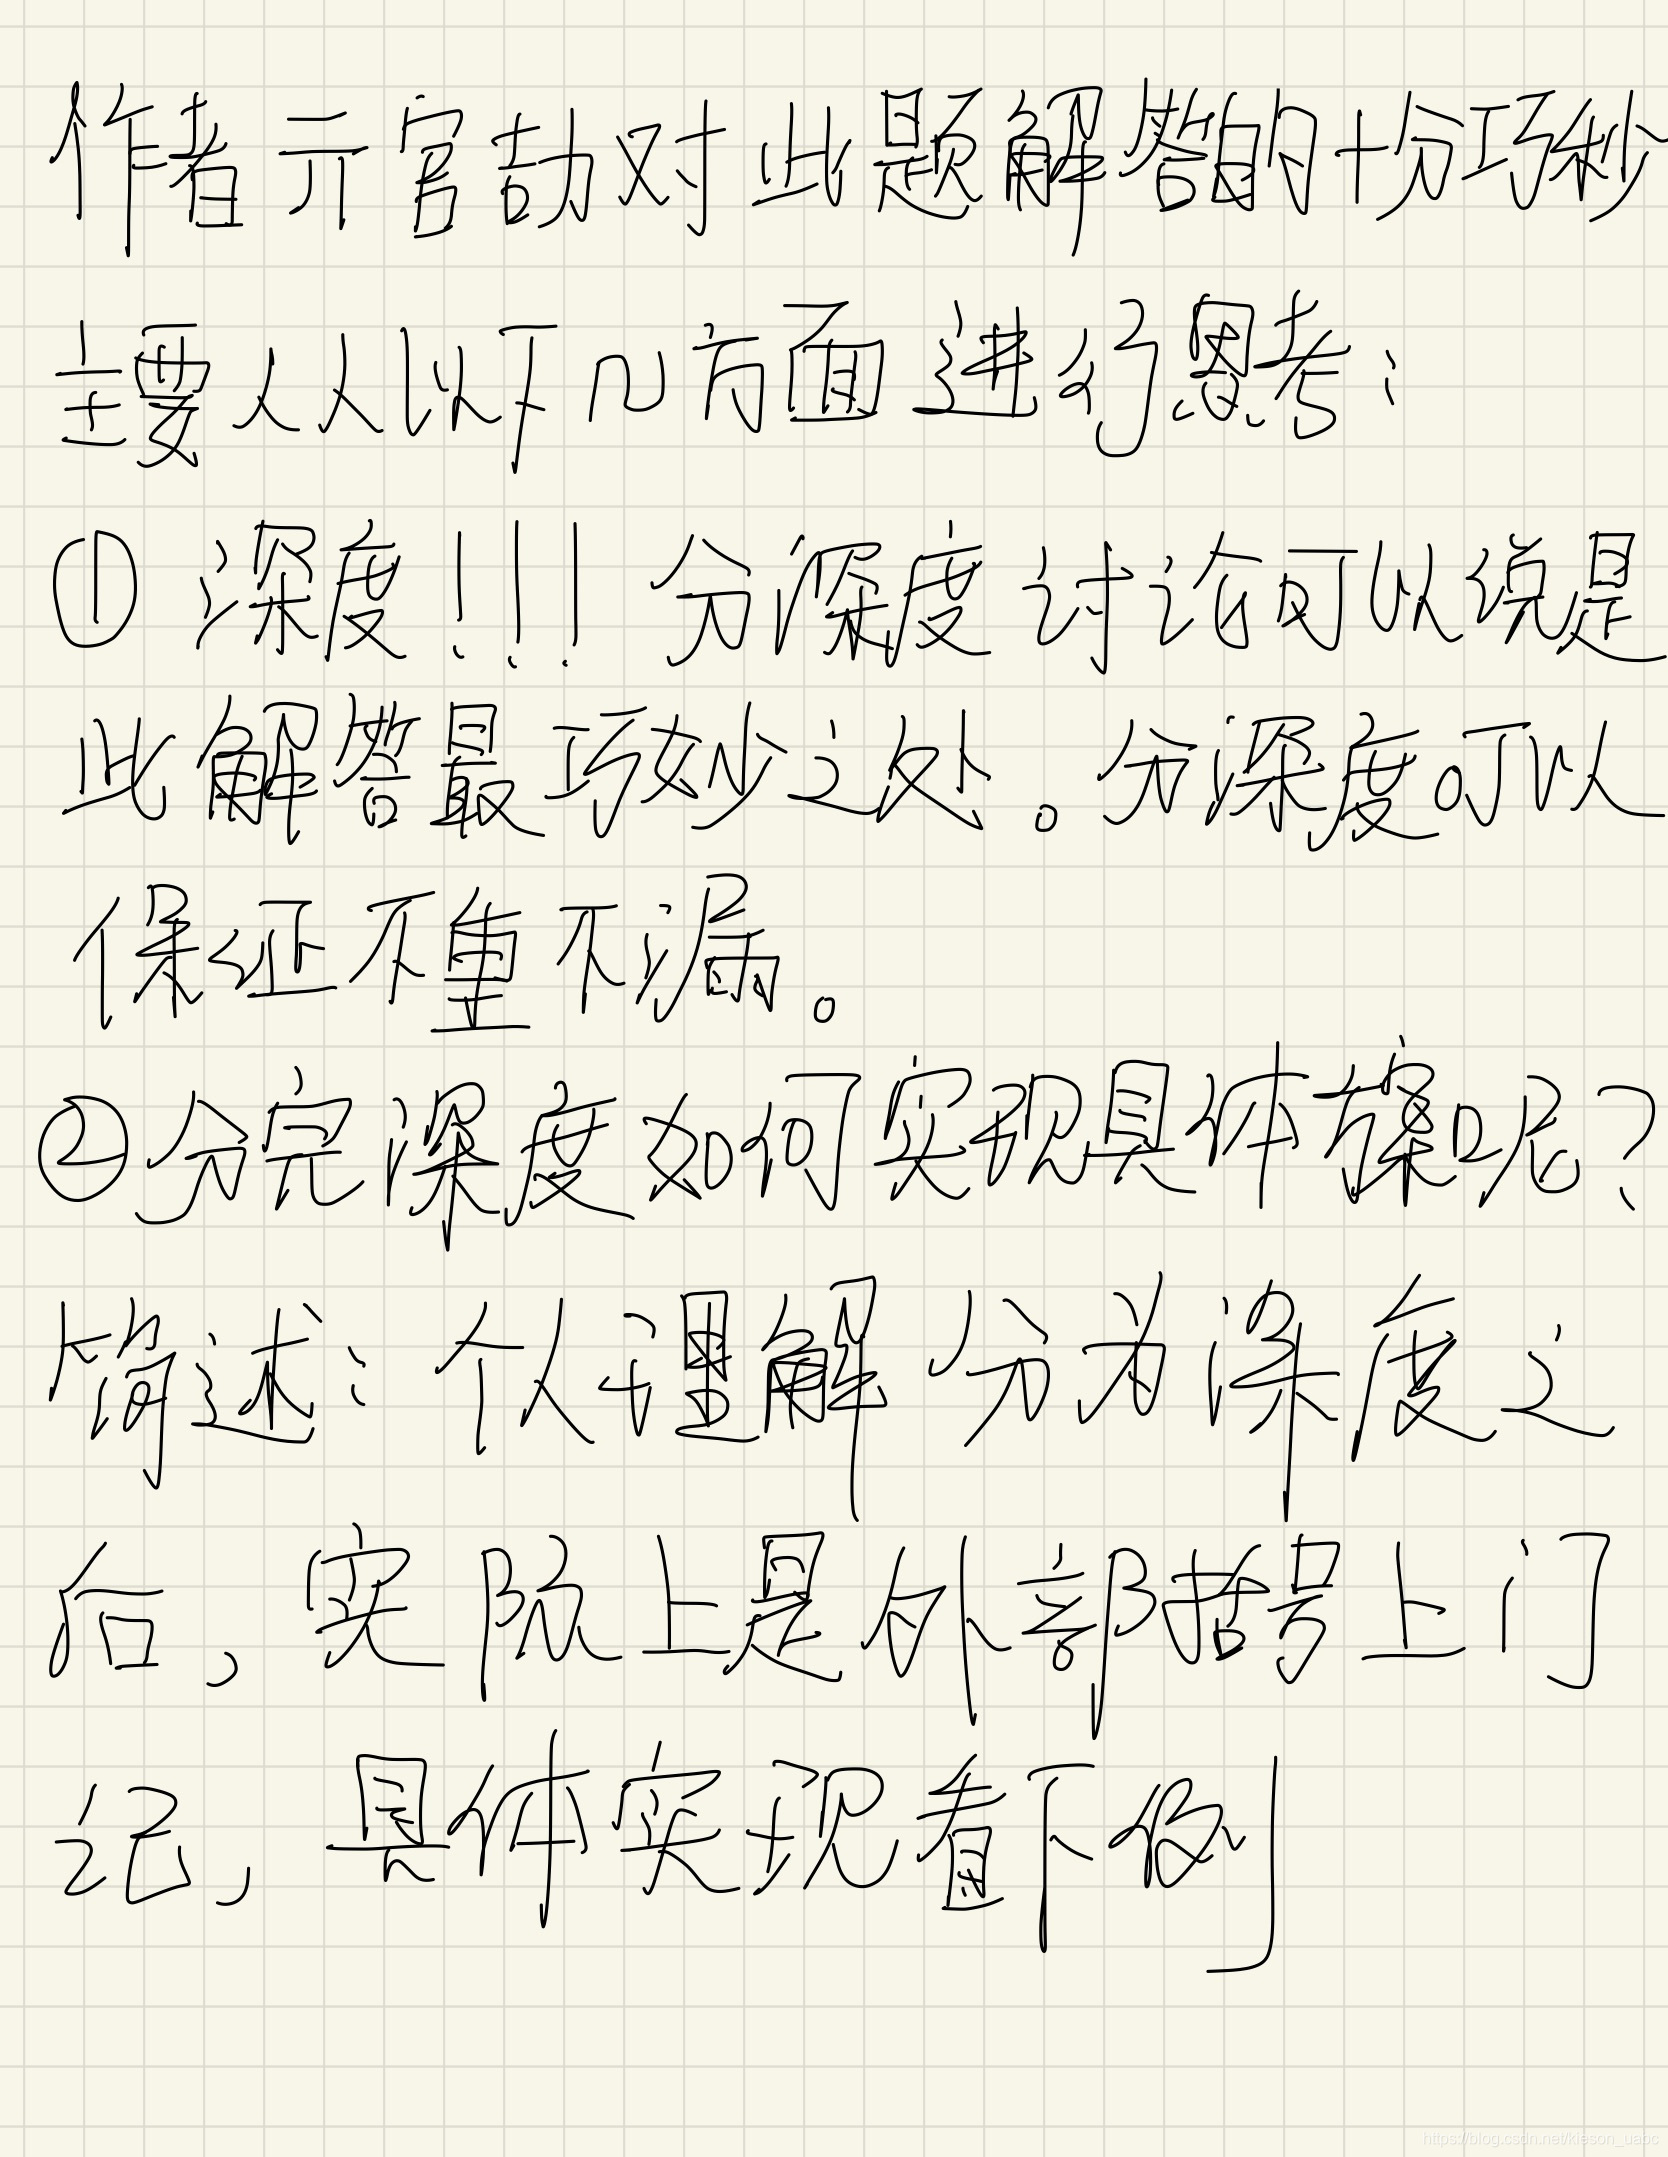 作者元官劼对此题解答的十分巧秒
主要人从以下几方面进行思考:
① 深度!!! 分深度讨论可以说是
此解答最巧妙之处。分深度可以
保证不重不漏。
②分完深度如何实现具体操呢?
简述:个人理解分为深度之
后,实际上是外部括号上门
记,具体实现看下例
https://blog.csdn.net/kieson_uabc